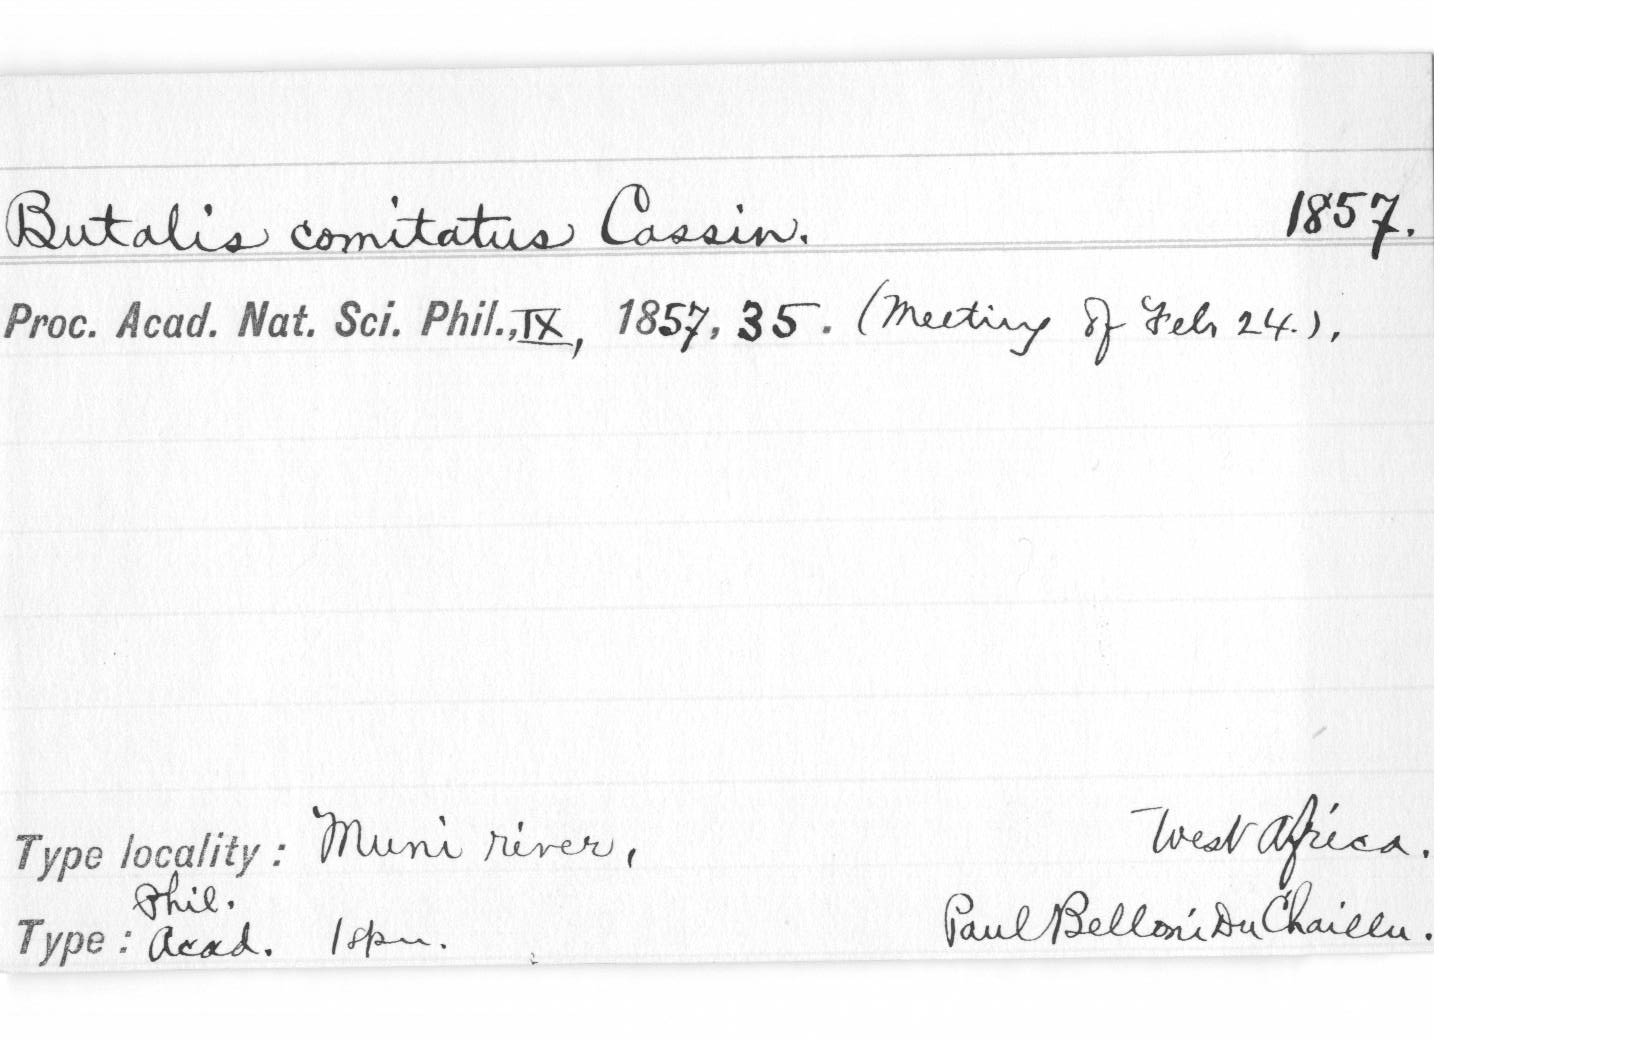 Butalis comitatus Cassin. 1857.
Proc. Acad. Nat. Sci. Phil., IX, 1857, 35. (Meeting of Feb 24.),
Type locality: Muni river, West Africa.
Phil.
Type: Acad. 1 spn. Paul Belloni Du Chaillu.